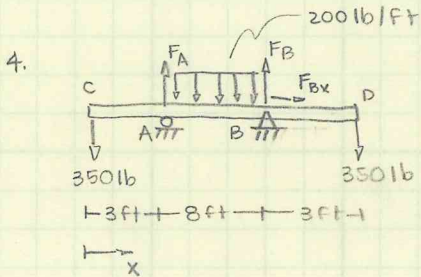 200 lb/ft
4.
F_A
F_B
F_Bx
C
D
A
B
350 lb
350 lb
3ft
8ft
3ft
x